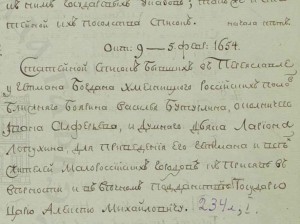 тѣйной ихъ посольства списокъ. начала нѣтъ
Окт. 9 – 5 фев. 1654.
Статейной списокъ бывшихъ въ Переславле
у гетмана Богдана Хмелницкого Россииских посло
ближняго боярина Василья Бутурлина, околничего
Ивана Олферьева, и Думного дьяка Лариона
Лопухина, для приведения его гетмана и всѣхъ
жителей Малороссииских городовъ къ присяге въ
верности и въ вѣчном подданстве Государю
Царю Алексѣю Михайловичу. 234 л.